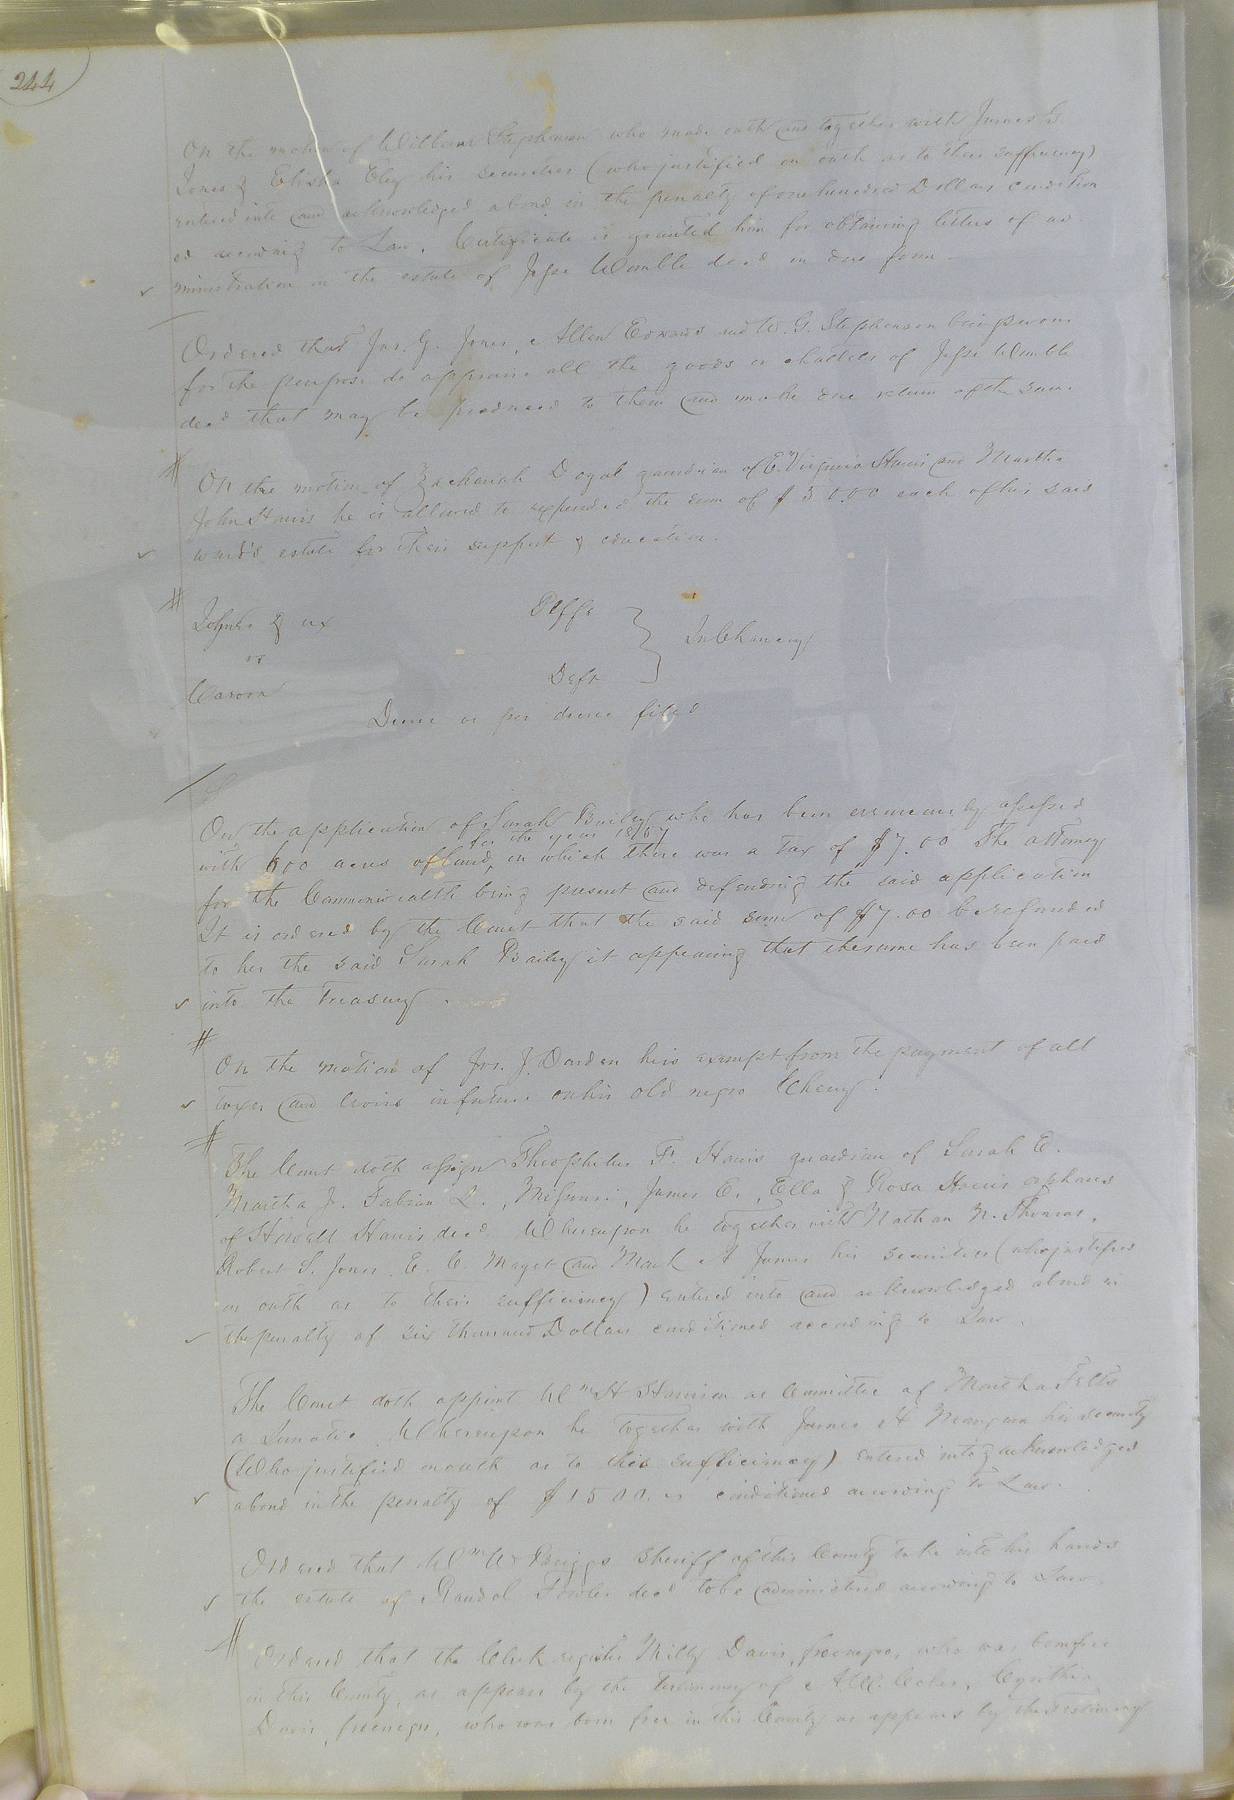 244
On the motion of William Stephenson who made oath and together with James G.
Jones & Elisha Eley his securities (who justified on oath as to their sufficiency)
entered into and acknowledged a bond in the penalty of one hundred Dollars condition
ed according to Law. Certificate is granted him for obtaining letters of ad
ministration on the estate of Jesse Womble decd in due form
Ordered that Jas. G. Jones, Allen Edwards and W. G. Stephenson
for the purpose do appraise all the goods or chattels of Jesse Womble
decd that may be produced to them and make due return of the same
On the motion of Zachariah Doyal guardian of Virginia Harris and Martha
John Harris he is allowed to expended the sum of $50.00 each of his said
ward's estate for their support & education.
& ux Plffs
vs In Chancery
Deft
filed
On the application of Sarah Bailey who has been erroneously assessed
for the year
with 600 acres of land, on which there was a tax of $7.00 The attorney
for the Commonwealth being present and defending the said application
It is ordered by the Court that the said sum of $7.00 be refunded
to her the said Sarah Bailey it appearing that the same has been paid
into the Treasury.
On the motion of Jos. J. Darden he is exempt from the payment of all
taxes and levies in future on his old negro Cherry.
The Court doth assign Theophilus F. Harris guardian of Sarah E.
Martha J. Fabian L., Missouri, James E., Ella & Rosa Harris orphans
of Howell Harris decd. Whereupon he together with Nathan N. Thomas,
Robert S. Jones E. C. Maget and Mark A James his securities (who justified
on oath as to their sufficiency) entered into and acknowledged a bond in
the penalty of six thousand Dollars conditioned according to Law.
The Court doth appoint Wm H Harrison as Committee of Martha Felts
a Lunatic. Whereupon he together with James H Mangum his security
(Who justified on oath as to this sufficiency) entered into & acknowledged
a bond in the penalty of $1500. conditioned according to Law.
Ordered that Wm W Briggs Sheriff of this County take into his hands
the estate of Randol Fowler decd to be administered according to Law.
Ordered that the Clerk register Milly Davis, free negro, who was born free
in this County, as appears by the testimony of Cynthia
Davis, free negro, who was born free in this County as appears by the testimony